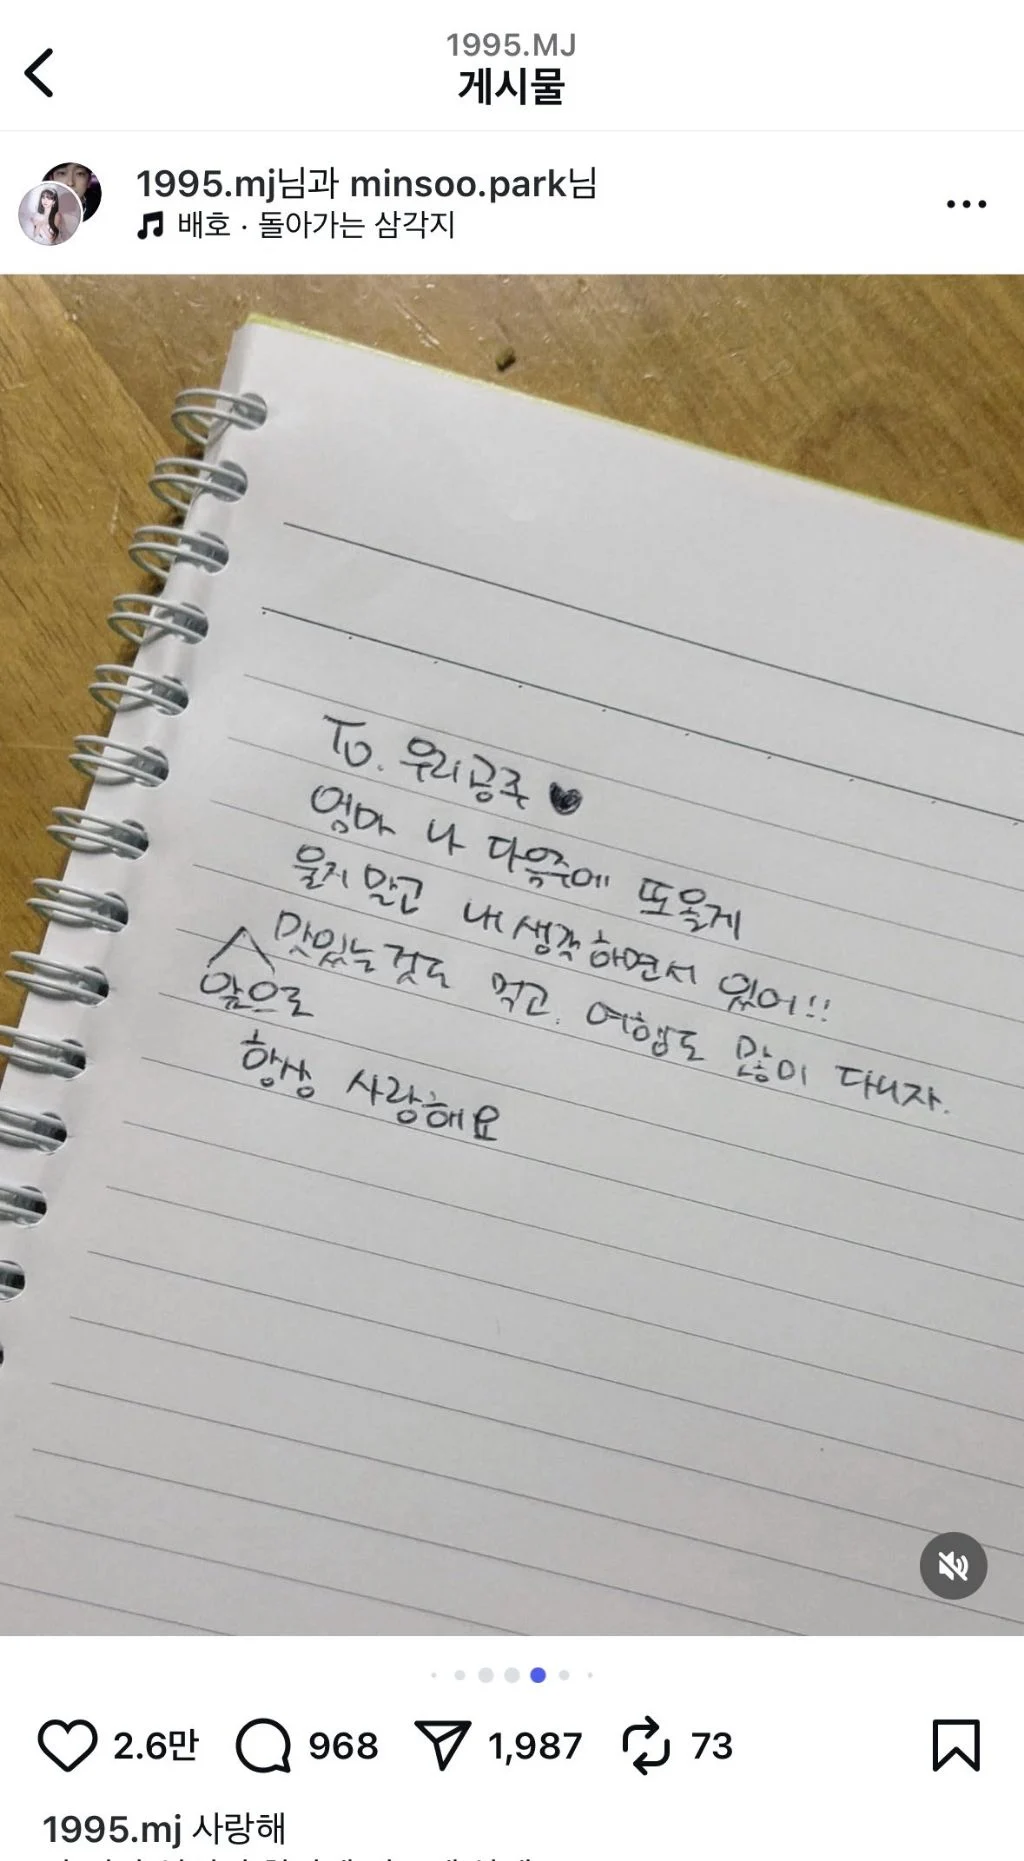 1995.MJ
게시물
1995.mj님과 minsoo.park님
배호 · 돌아가는 삼각지
To. 우리공주 ♥
엄마 나 다음주에 또올게
울지 말고 내 생각하면서 있어!!
맛있는것도 먹고. 여행도 많이 다니자.
앞으로
항상 사랑해요
2.6만 968 1,987 73
1995.mj 사랑해